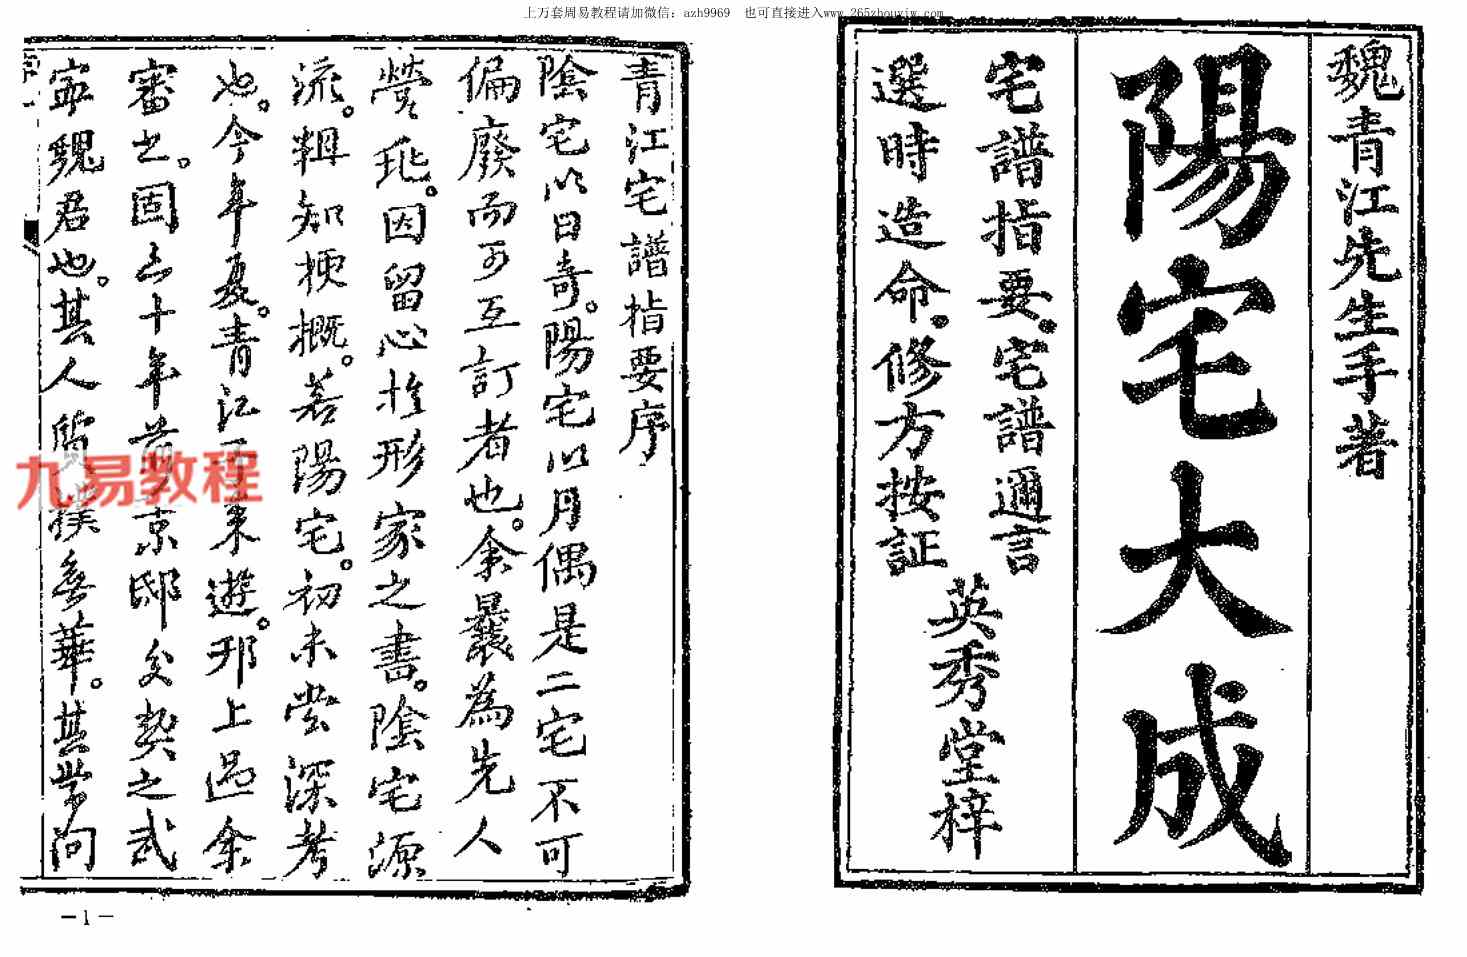 上万套周易教程请加微信：azh9969　也可直接进入www.265zhouyiw.com
魏青江先生手著
陽宅大成
宅譜指要．宅譜邇言
選時造命．修方按証
英秀堂梓
青江宅譜指要序
陰宅以日奇。陽宅以月偶是二宅不可
偏廢而可互訂者也。余曩為先人
塋兆。因留心於形家之書。陰宅源
流。輯知梗概。若陽宅。初未嘗深考
也。今年夏。青江子来遊。邗上過余
審之。固三十年前京邸久契之武
寧魏君也。其人質樸無華。其學問
九易教程
—1—